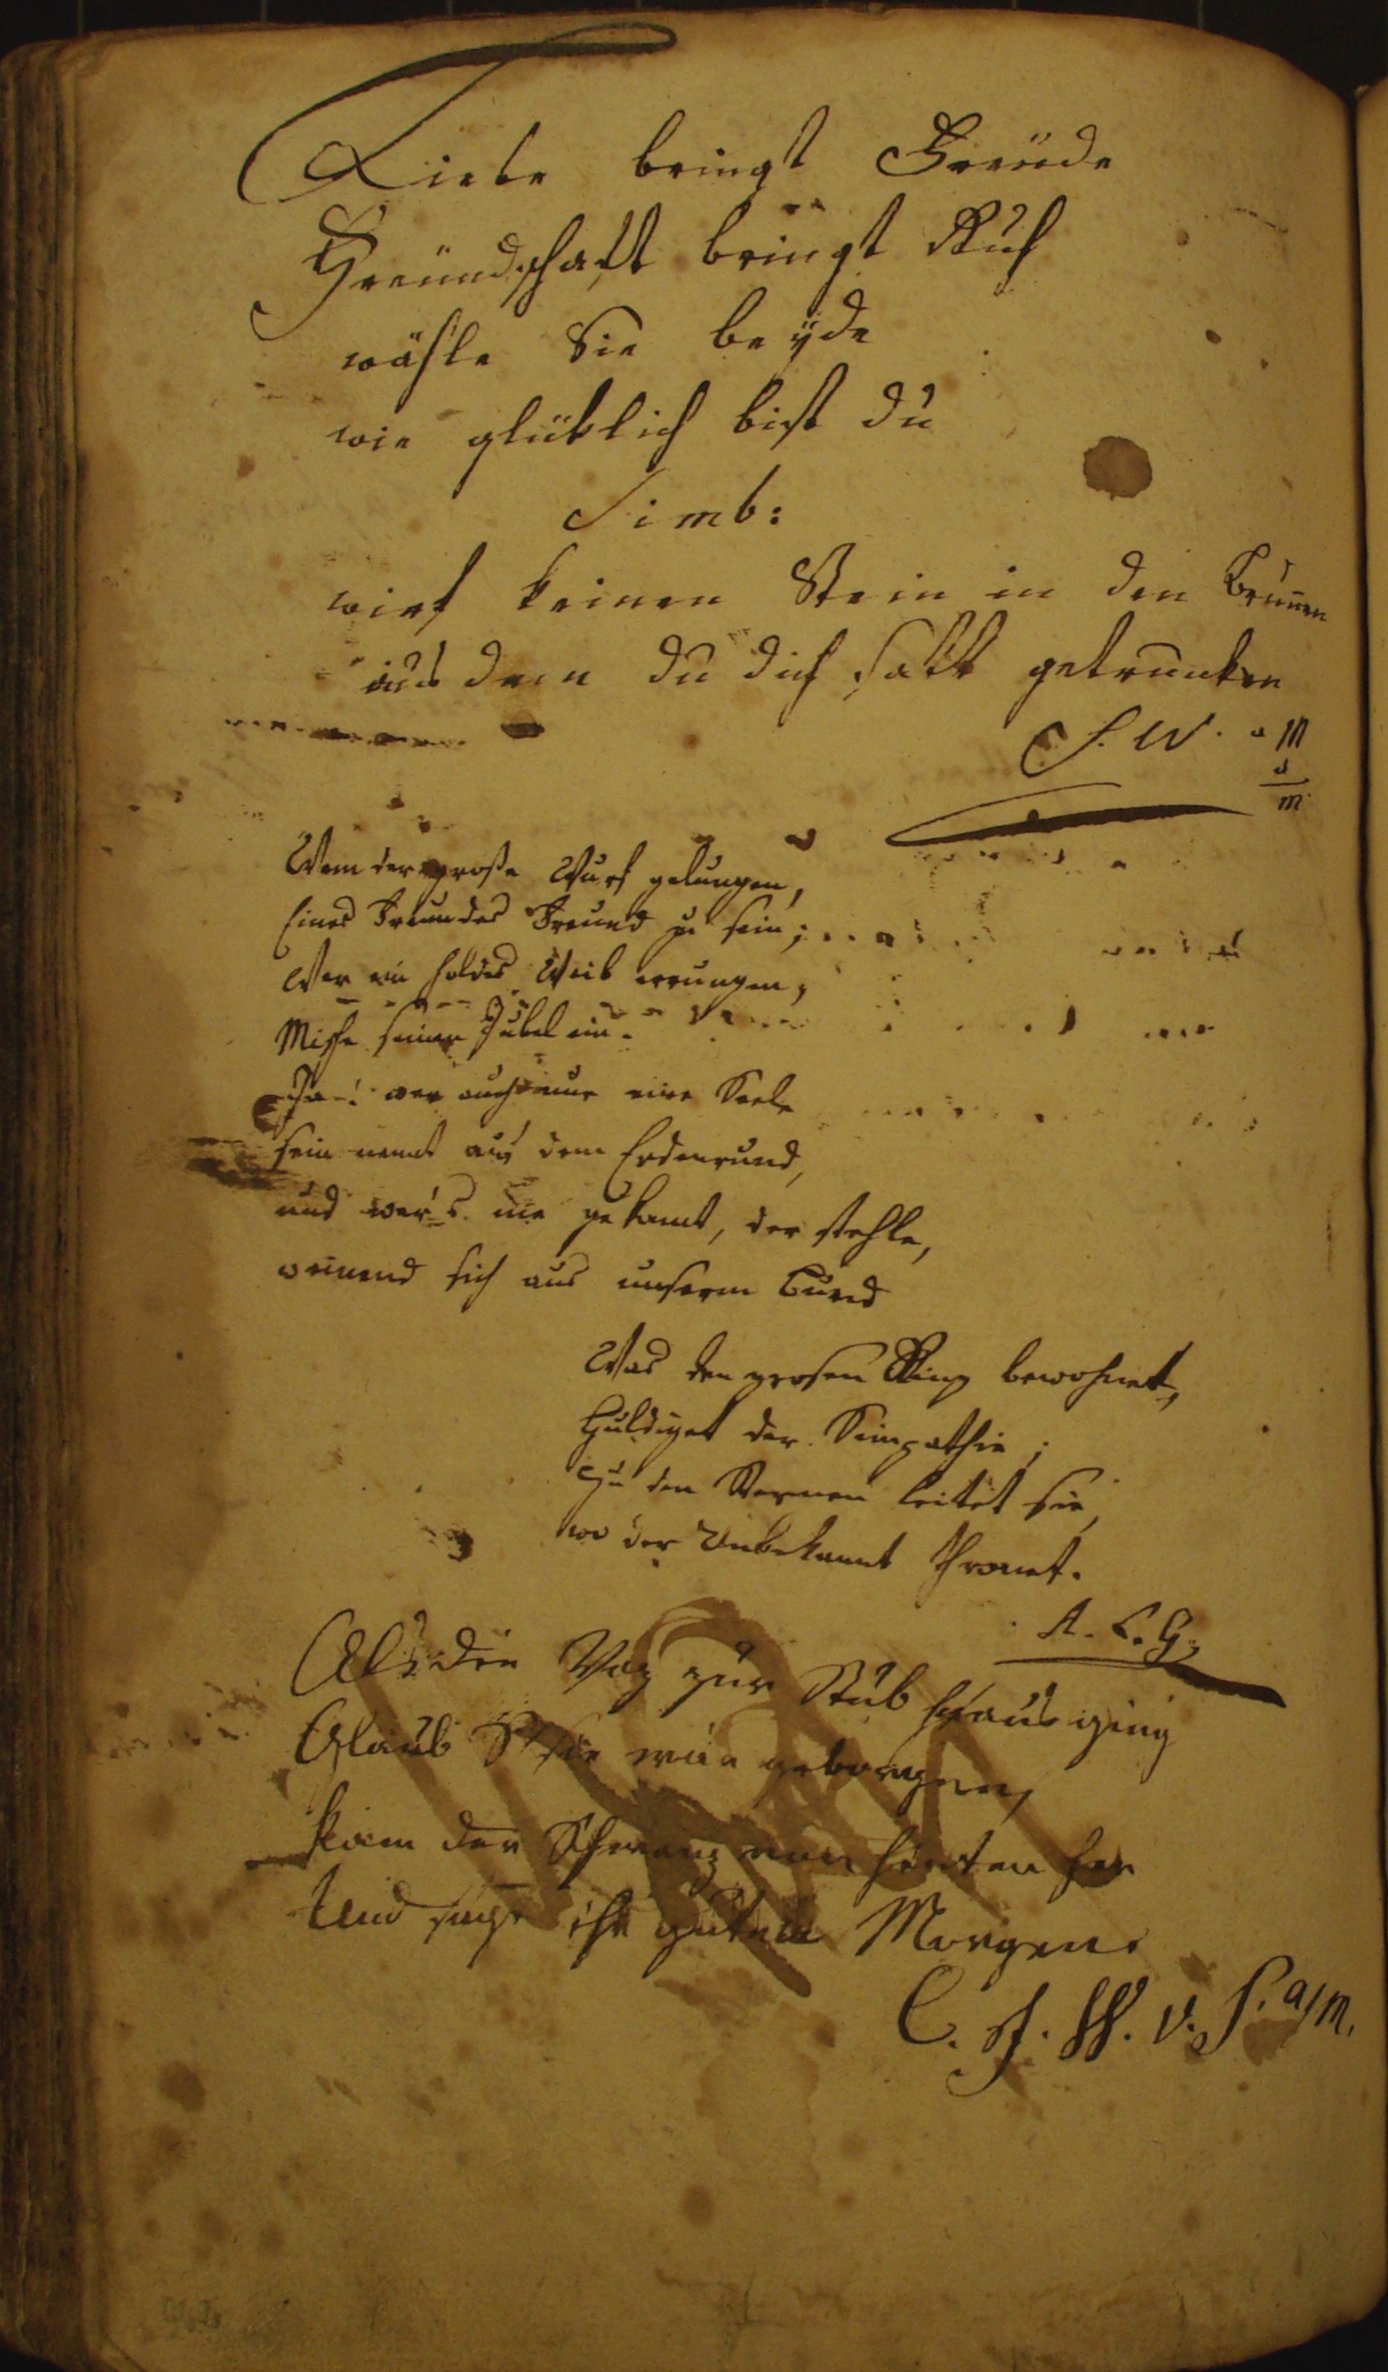 Liebe bringt Freüde
Freündschaft bringt Ruh
wähle Sie beÿde
wie glüklich bist du
Simb:
wirf keinen Stein in den Brunen
aus dem du dich satt getruncken
C. f. W. a m
a
m
Wem der große Wurf gelungen,
Eines Freundes Freund zu sein;
Wer ein holdes Weib errungen,
Mische seinen Jubel ein.
Ja! wer auch nur eine Seele
sein nennt auf dem Erdenrund,
und wer's nie gekannt, der stehle,
weinend sich aus unserm Bund
Was den grosen Ring bewohnet,
Huldiget der Simpathie;
Zu den Sternen leitet sie,
wo der Unbekannt thronet.
A. L. G.
Als die zur Stub hinaus ging
Glaub sie wär geborgen,
kam der Schwanz von hinten her
Und sagt ihr guten Morgen.
C. f. W. v. S. a/m.